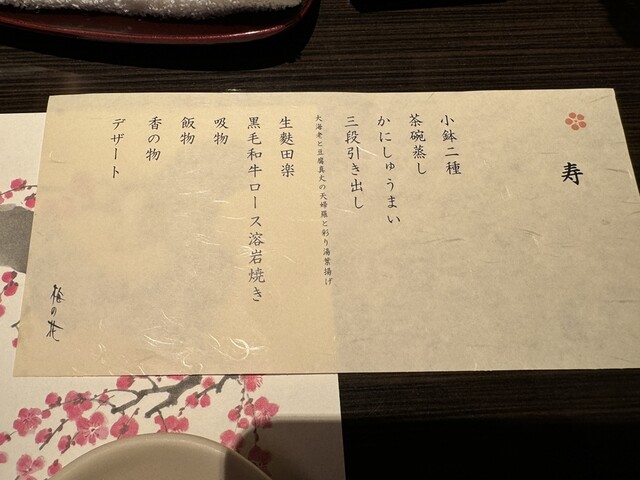 寿
小鉢二種
茶碗蒸し
かにしゅうまい
三段引き出し
大海老と豆腐真丈の天婦羅と彩り湯葉揚げ
生麩田楽
黒毛和牛ロース溶岩焼き
吸物
飯物
香の物
デザート
梅の花